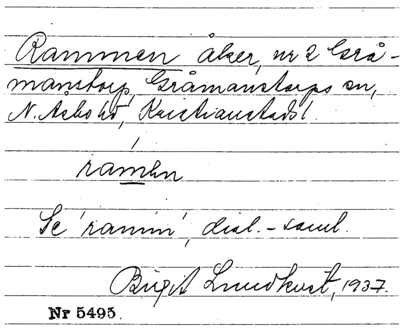 Rammen åker, nr 2 Grå-
manstorp, Gråmanstorps sn,
N. Åsbo hd, Kristianstads l.
ramən
Se 'ramm', dial.-saml.
Birgit Lundkvist, 1937.
Nr 5495.